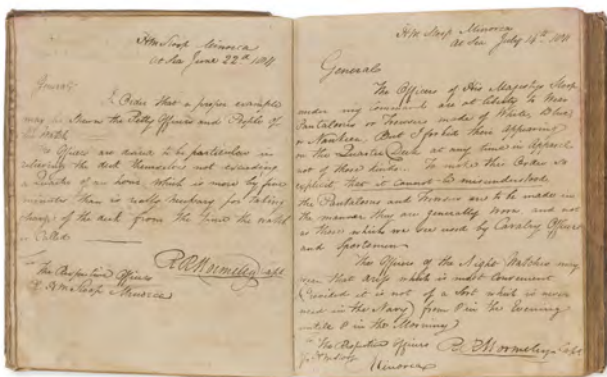 HM Sloop Minorca
at Sea June 22d 1811
General
In Order that a proper example
may be shewn the Petty Officers and People of
the Watch
The Officers are desired to be particular in
relieving the deck themselves not exceeding
a Quarter of an hour, which is more by five
minutes than is really necessary for taking
charge of the deck from the time the watch
is Called
R R Wormeley Capt
To The Respective Officers
of HM Sloop Minorca
HM Sloop Minorca
at Sea July 14th 1811
General
The Officers of His Majestys Sloop
under my command are at liberty to Wear
Pantaloons or Trowsers made of White, Blue,
or Nankeen But I forbid them appearing
on the Quarter Deck at any time in Apparel
not of those kinds To make this Order so
explicit that it cannot be misunderstood
the Pantaloons and Trowsers are to be made in
the manner they are generally worn and not
as those which are used by Cavalry Officers
and Sportsmen
The Officers of the Night Watches may
wear that dress which is most convenient
(Provided it is not of a Sort which is never
used in the Navy) from 8 in the Evening
untill 8 in the Morning
To The Respective Officers R. R. Wormeley Capt
of HM Sloop
Minorca